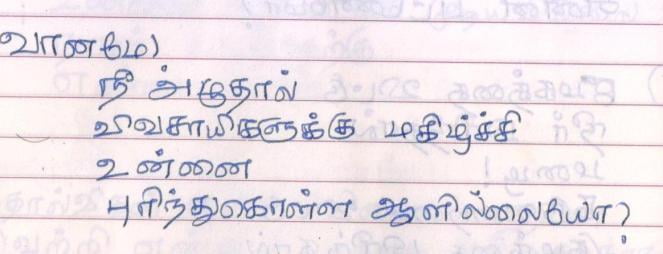 வானமே)
நீ அழுதால்
விவசாயிகளுக்கு மகிழ்ச்சி
உன்னை
புரிந்துகொள்ள ஆளில்லையோ?